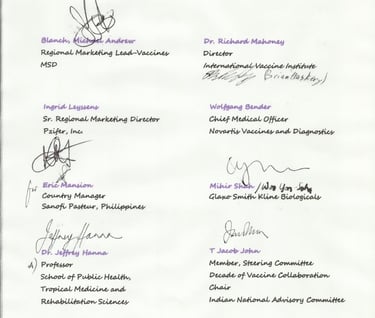 Blanch, Michael Andrew
Regional Marketing Lead-Vaccines
MSD
Dr. Richard Mahoney
Director
International Vaccine Institute
Ingrid Leyssens
Sr. Regional Marketing Director
Pzifer, Inc.
Wolfgang Bender
Chief Medical Officer
Novartis Vaccines and Diagnostics
for Eric Mansion
Country Manager
Sanofi Pasteur, Philippines
Mihir Shah
Glaxo Smith Kline Biologicals
Jeffrey Hanna
Dr. Jeffrey Hanna
Professor
School of Public Health,
Tropical Medicine and
Rehabilitation Sciences
T Jacob John
Member, Steering Committee
Decade of Vaccine Collaboration
Chair
Indian National Advisory Committee